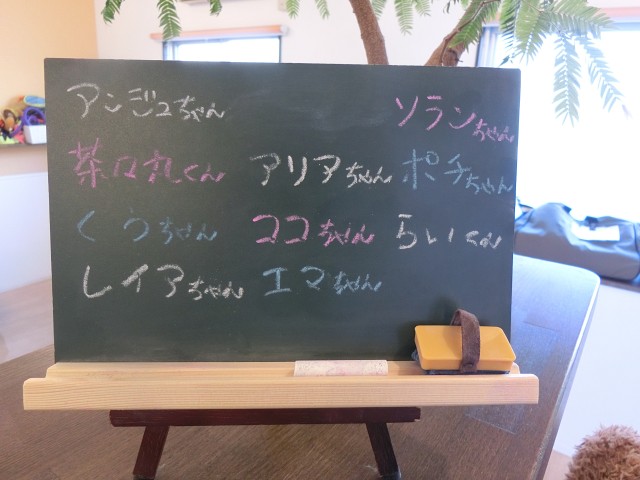 アンジュちゃん ソランちゃん
茶々丸くん アリアちゃん ポチちゃん
くうちゃん ココちゃん らいくん
レイアちゃん エマちゃん